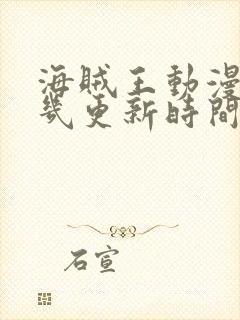 海賊王動漫
幾更新時間
石宣